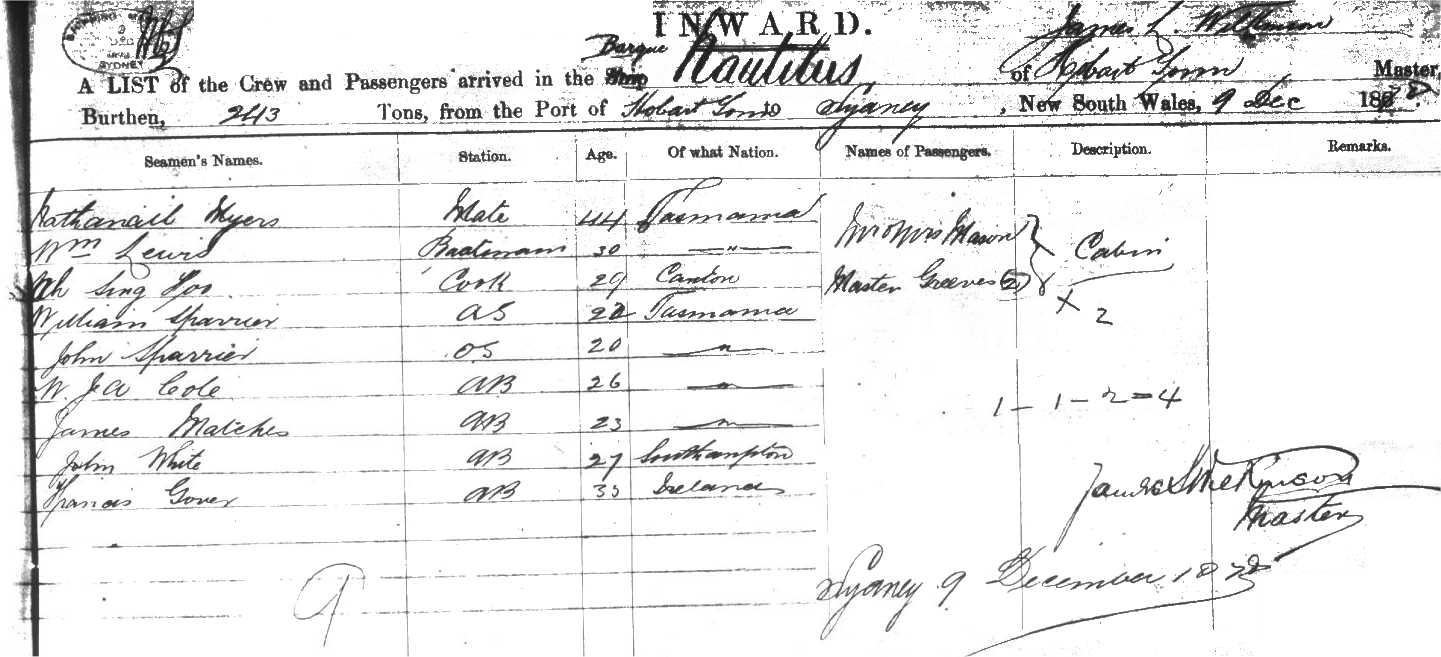 SHIPPING
DEC
SYDNEY
INWARD.
A LIST of the Crew and Passengers arrived in the Ship Barque Nautilus James L. Wilkinson of Hobart Town Master,
Burthen, 243 Tons, from the Port of Hobart Town to Sydney, New South Wales, 9 Dec 187
Seamen's Names. Station. Age. Of what Nation. Names of Passengers. Description. Remarks.
Nathanail Myers Mate 44 Tasmania Mr & Mrs Mason Cabin
Wm Lewis Boatsman 30 —"—
Ah Sing Cook 29 Canton Master Greeves (2) X 2
William Sparrier AS 22 Tasmania
John Sparrier OS 20 —"—
W. J A Cole AB 26 —"— 1 - 1 - 2 = 4
James Matches AB 23 —"—
John White AB 27 Southampton
Francis Gover AB 35 Ireland
James L Wilkinson
Master
Sydney 9 December 187
9